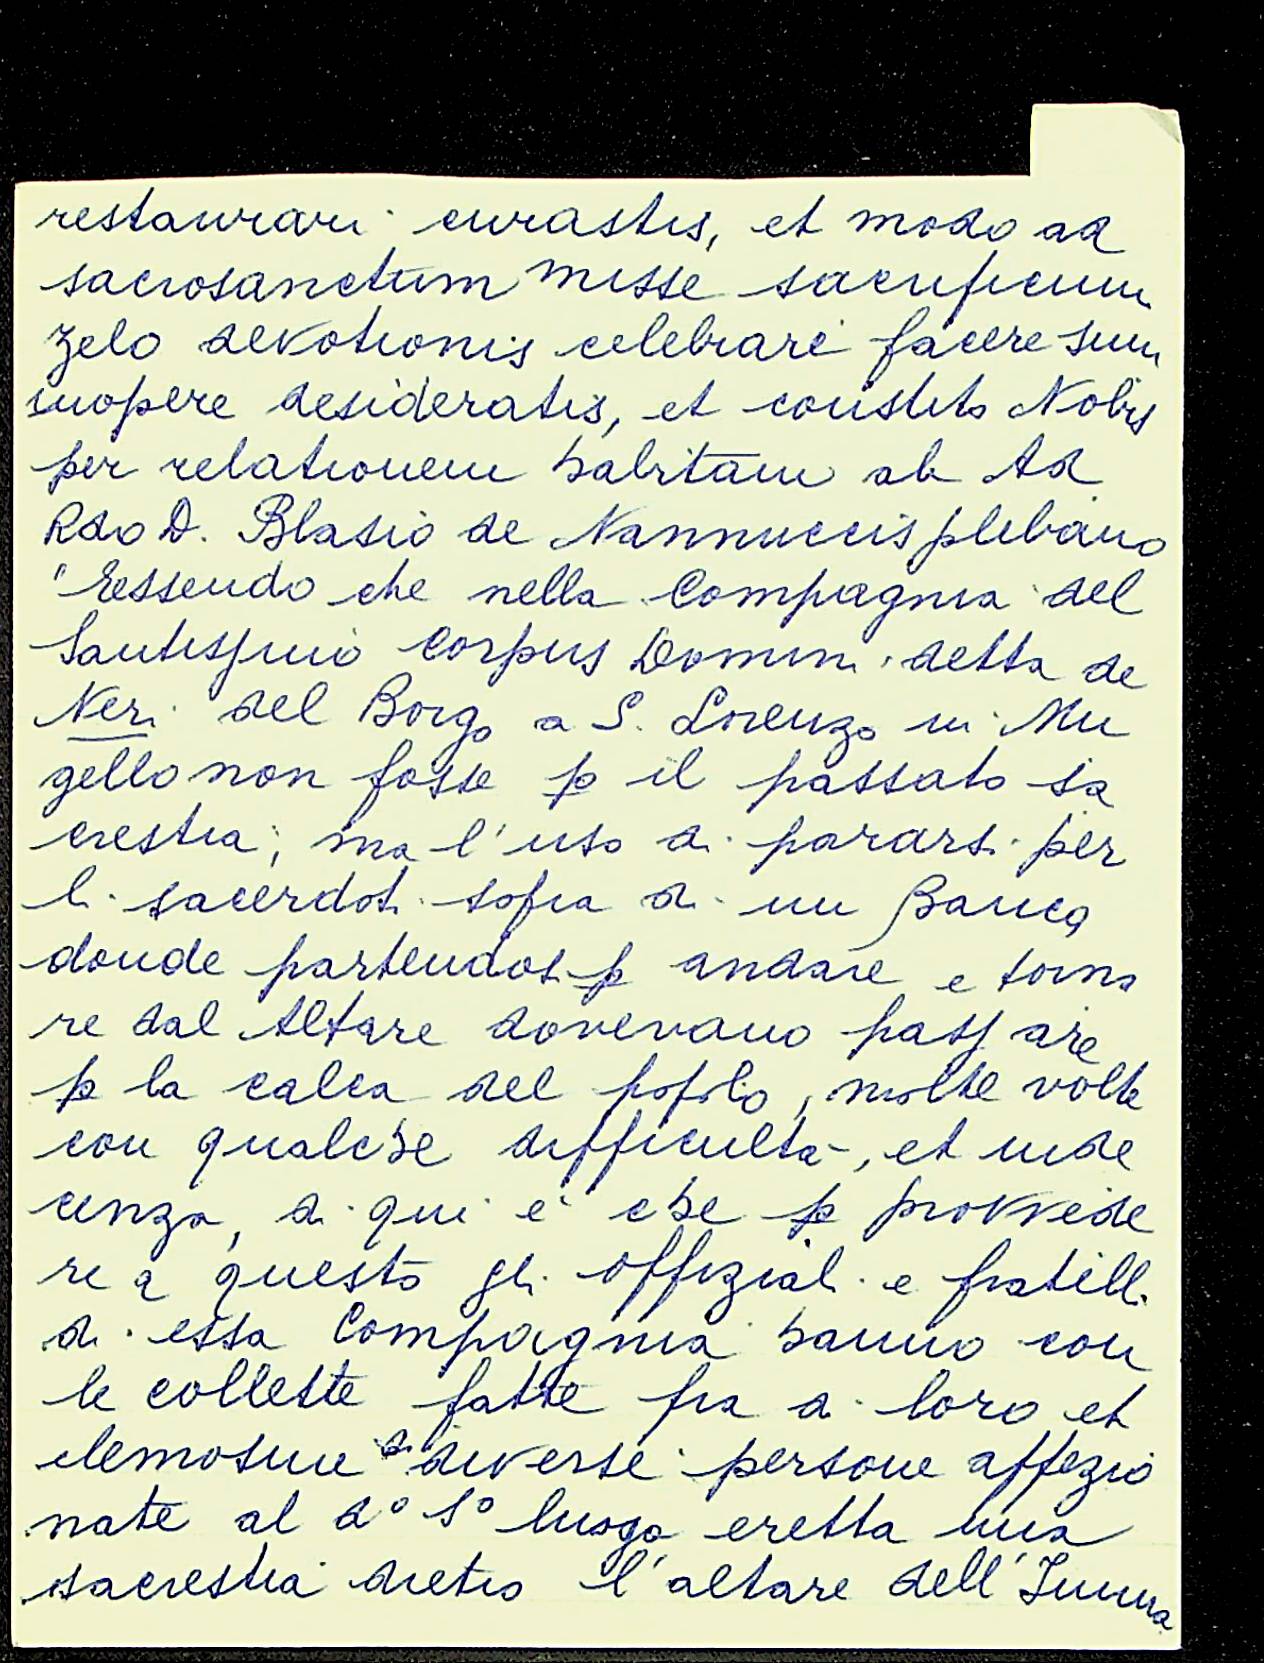 restaurari curastis, et modo ad
sacrosanctum misse sacrificium
zelo devotionis celebrare facere sum
muopere desideratis, et constito Nobis
per relationem habitam ab Ad
Rdo D. Blasio de Nannuccis plebano
"Essendo che nella Compagnia del
Santissimo Corpus Domini detta de
Neri del Borgo a S. Lorenzo in Mu
gello non fosse p il passato sa
crestia; ma l'uso di pararsi per
li sacerdoti sopra di un Banco
donde partendosi p andare e torna
re dal Altare dovevano passare
p la calca del popolo, molte volte
con qualche difficulta, et inde
cenza, di qui è che p provvede
re a questo gli offiziali e fratelli
di essa Compagnia hanno con
le collette fatte fra di loro et
elemosine di diverse persone affezio
nate al do So luogo eretta una
sacrestia dietro l'altare dell'Imma